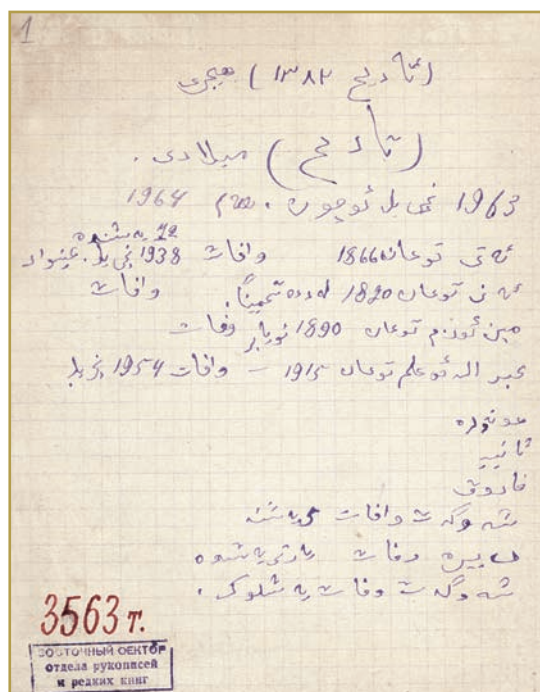 1
(تأريخ ١٣٨٢) هيجرى
(تأريخ) ميلادى.
1963 نچى يل ئوچون. 1964
72 يەشندە
ئەتى توعان 1866 وافات 1938 نچى يلد. غينوار
ئەنى توعان 1820 لەردە تخمیناً. وافات
مين ئوزم توعان 1890 نويابر وفات
عبد الله ئوعلم توعان 1915 – وافات 1954 نچى يلد
مونەورە
ثانييە
فاروق
شەوكەت وافات يەشندە
وفات يەشندە
شەوكەت وفات يەشلوك.
3563 т.
ВОСТОЧНЫЙ СЕКТОР
отдела рукописей
и редких книг